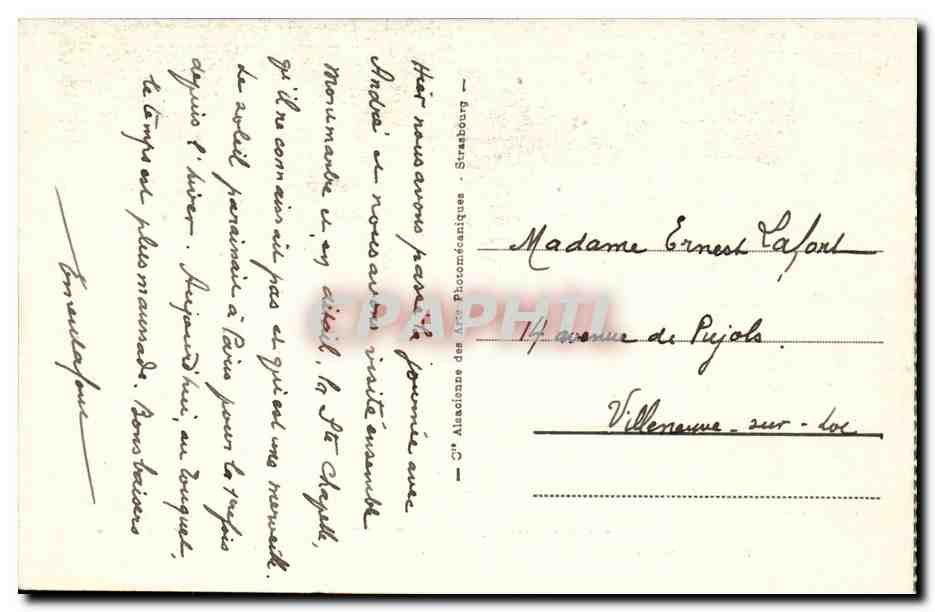 Hier nous avons passé la journée avec
André et nous avons visité ensemble
Monumantre et, en détail, la Ste Chapelle,
qu'il ne connaissait pas et qui est une merveille.
Le soleil paraissait à Paris pour la 1re fois
depuis l'hiver. Aujourd'hui, au Touquet,
le temps est plus maussade. Bons baisers
— Cie Alsacienne des Arts Photomécaniques - Strasbourg —
Madame Ernest Lafont
14 avenue de Pujols.
Villeneuve-sur-Lot
EPAPHTI